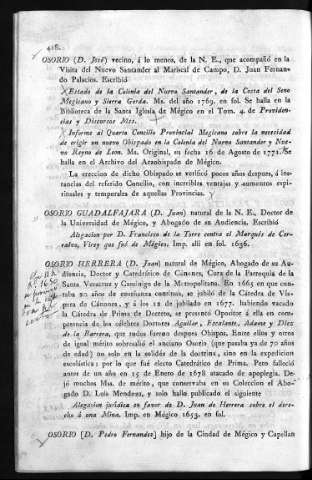 418.
OSORIO (D. José) vecino, á lo menos, de la N. E., que acompañó en la
Visita del Nuevo Santander al Mariscal de Campo, D. Juan Fernan-
do Palacios. Escribió
Estado de la Colonia del Nuevo Santander, de la Costa del Seno
Megicano y Sierra Gorda. Ms. del año 1769. en fol. Se halla en la
Biblioteca de la Santa Iglesia de Mégico en el Tom. 4. de Providen-
cias y Discursos Mss.
Informe al Quarto Concilio Provincial Megicano sobre la necesidad
de erigir un nuevo Obispado en la Colonia del Nuevo Santander y Nue-
vo Reyno de Leon. Ms. Original, en fecha 16 de Agosto de 1771. Se
halla en el Archivo del Arzobispado de Mégico.
La ereccion de dicho Obispado se verificó pocos años despues, á ins-
tancias del referido Concilio, con increibles ventajas y aumentos espi-
rituales y temporales de aquellas Provincias.
OSORIO GUADALFAJARA (D. Juan) natural de la N. E., Doctor de
la Universidad de Mégico, y Abogado de su Audiencia. Escribió
Alegacion por D. Francisco de la Torre contra el Marqués de Cer-
ralvo, Virey que fué de Mégico. Imp. allí en fol. 1636.
OSORIO HERRERA (D. Juan) natural de Mégico, Abogado de su Au-
diencia, Doctor y Catedrático de Cánones, Cura de la Parroquia de la
Santa Veracruz y Canónigo de la Metropolitana. En 1665 en que con-
taba 20 años de continuos cantinuo, se jubiló de la Cátedra de Vís-
pera de Cánones, y á los 12 de jubilado en 1677. habiendo vacado
la Cátedra de Prima de Decreto, se presentó Opositor á ella en com-
petencia de los célebres Doctores Aguilar, Escalante, Adame y Diez
de la Barrera, que todos fueron despues Obispos. Entre ellos y otros
de igual mérito sobresalió el anciano Osorio (que pasaba ya de 70 años
de edad) no solo en la solidez de la doctrina, sino en la expedicion
escolástica: por lo que fué electo Catedrático de Prima. Pero falleció
antes de un año en 15 de Enero de 1678 atacado de apoplegía. De-
jó muchos Mss. de mérito, que conservaba en su Coleccion el Abo-
gado D. Luis Mendez, y solo halla publicado el siguiente
Alegacion jurídica en favor de D. Juan de Herrera sobre el dere-
cho á una Mina. Imp. en Mégico 1653. en fol.
OSORIO [D. Pedro Fernandez] hijo de la Ciudad de Mégico y Capellan